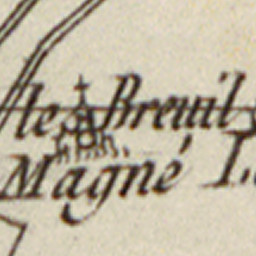 le Breuil
Magné